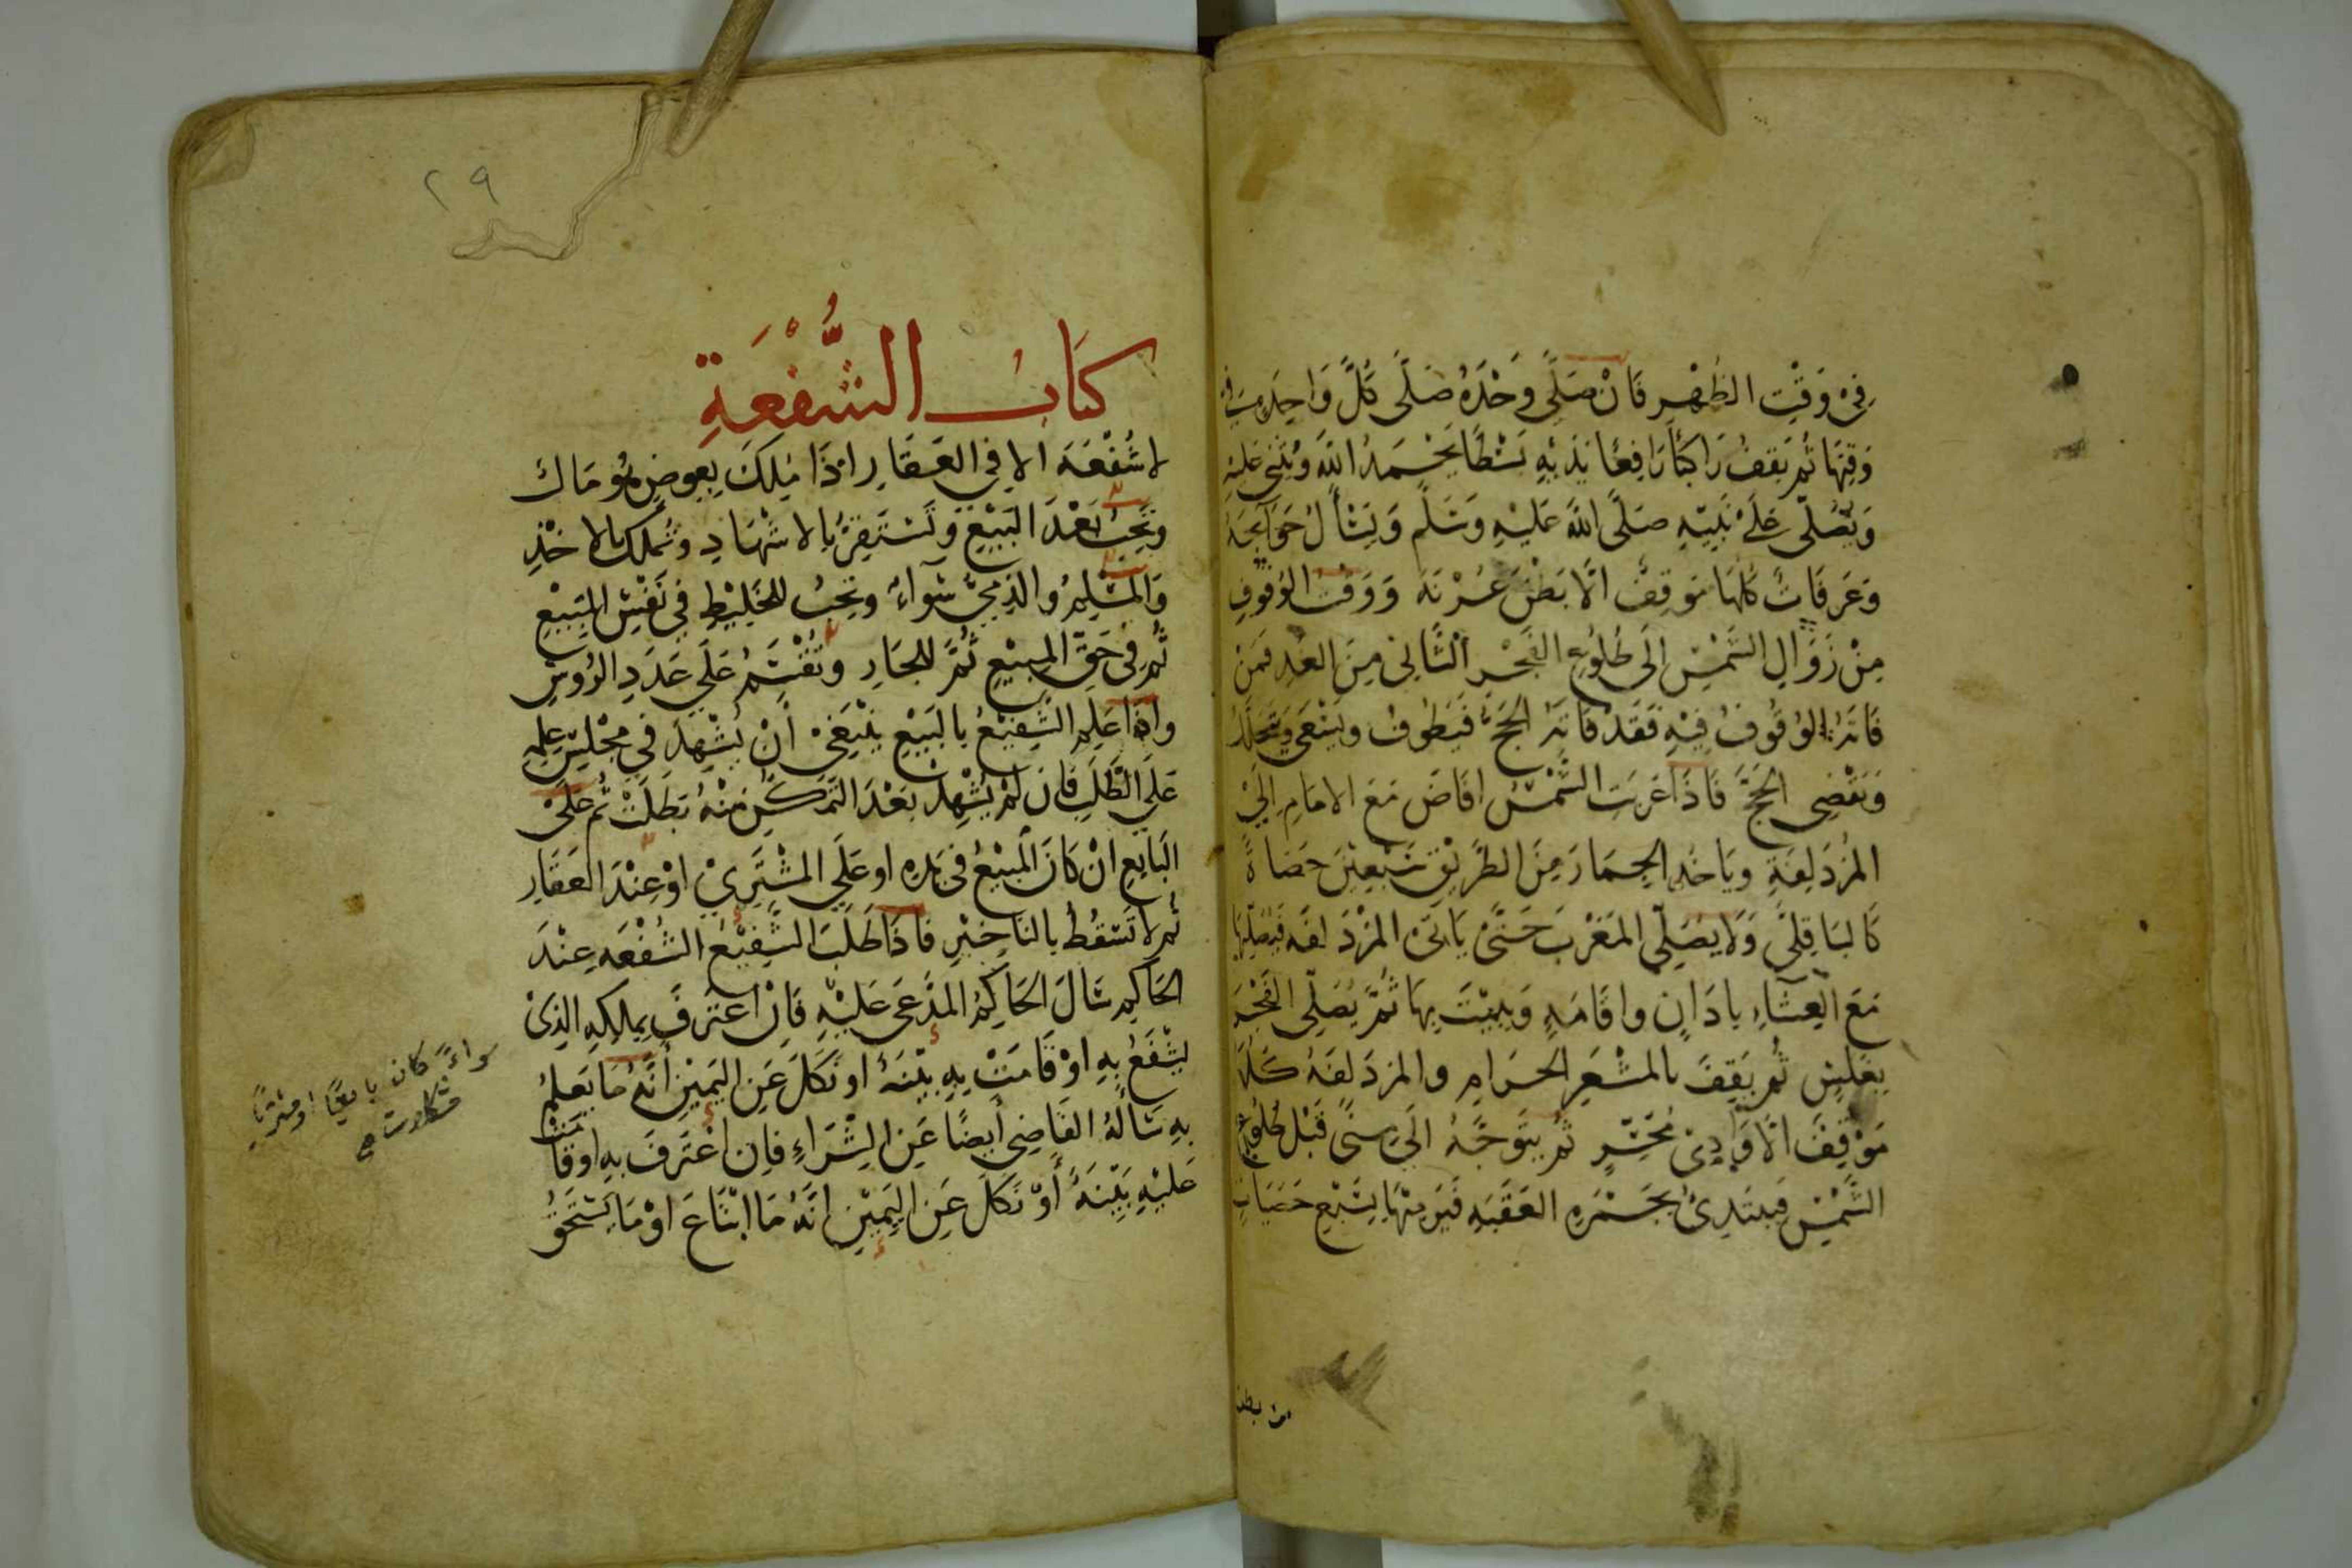 في وَقْتِ الظُهْرِ فَانْ صَلَّى وَحْدَهُ صَلَّى كُلَّ وَاحِدَةٍ في
وَقِتِهَا ثُمَّ يَقِفُ رَاكبًا رَافِعًا يَدَيْهِ بَسْطًا يَحْمَدُ اللَّهَ وَيُثْنِى عَليْهِ
وَيُصَلّى عَلَى نَبِيّهِ صَلَّى اللَّهُ عَلَيْهِ وَسَلَّم وَيَسْأَلُ حَوَآيِجَهُ
وَعَرَفَاتُ كُلُّهَا مَوْقِفٌ الَّا بَطْنَ عُرْنَهَ وَوَقْتُ الوُقُوفِ
مِنْ زَوَالِ الشَّمْسِ الَى طُلُوعِ الفَجْرِ الثَّانِى مِنَ الغَدِ فَمَنْ
فَاتَهُ الوُقُوفُ فِيْهِ فَقَدْ فَاتَهُ الحَجّ فَيَطُوفُ وَيَسْعَى وَيَتَحَلَّلُ
وَيَقْضِى الحَجَّ فَاذَا غَرَبَتِ الشَّمْسُ افَاضَ مَعَ الامَامِ الَىْ
المُزْدَلِفَةِ وَيَاخُذ الجِمَارَ مِنَ الطَّرِيْقِ سَبْعِيْنَ حَصَاةً
كَالبَاقِلَّى وَلَا يُصَلِّى المَغْرِبَ حَتَّىْ يَاتىَ المُزْدَلفَه فَيُصَلِّيهَا
مَعَ العِشَآءِ بِاذَانٍ وَاقَامَهٍ وَيَبِيْتَ بِهَا ثُمَّ يُصَلِّى الفَجْرَ
بِغَلَسٍ ثُم يَقِفَ بالمَشْعَرِ الحرَامِ والمزدَلفَهُ كُلّهَا
مَوْقِفٌ الَّا وَادِىْ مُحَسِّرٍ ثُم يَتَوَجَّهُ الَى مِنىً قَبْلَ طُلُوعِ
الشَّمْسِ فَيبتَدِىُ بِجَمْرَهِ العَقَبَهِ فَيَرمِيْهَا بِسَبْعِ حَصَيَاتٍ
من بطن
٢٩
كتَابُ الشُّفْعَةِ
لا شُفْعَهَ الا فِي العَقَارِ اذَا مُلِكَ بِعِوضٍ هُو مَالٌ
وَتَجِبُ بَعْدَ البَيْعِ وَتَسْتَقِرُّ بالاشْهَادِ وَتُملَكُ بالاخْذِ
وَالمُسْلِمُ وَالذِّمِيُّ سَوَاءٌ وَتَجِبُ للخَلِيْطِ فِي نَفْسِ المَبِيْعِ
ثُمَّ فِي حَقِّ المَبِيْعِ ثُمَّ للجَارِ وَتُقْسَمُ عَلَى عَدَدِ الرُؤسِ
وَاذَا عَلِمَ الشَّفِيْعُ بِالبَيْعِ يَنْبَغِىْ أَنْ يُشْهِدَ فِي مَجْلِسِ عِلمِهِ
عَلَى الطَّلَبِ فَان لَمْ يُشْهِدْ بَعْدَ التَّمَكُّنِ مِنْهُ بَطَلَتْ ثُم عَلَىْ
البَايِعِ انْ كَانَ المَبِيْعُ فى يَدِهِ او عَلَي المُشْتَرِيْ اوْ عِنْدَ العَقَارِ
ثُم لا تَسْقُطُ بالتَاخِيْرِ فَاذَا طَلَبَ الشَّفِيْعُ الشُفْعَه عِنْدَ
الحَاكِمِ سَالَ الحَاكِمُ المُدَّعَى عَلَيْهِ فَانِ اعْتَرَفَ بِمِلكِهِ الَّذِىْ
يَشْفَعُ بِهِ اوْ قَامَتْ بِهِ بَيّنَهٌ او نَكَلَ عَنِ اليَمِيْنِ أَنَّهُ مَا يَعلَمُ
بِهِ سَأَلَهُ القَاضِى أيضًا عَنِ الشِّرَاءِ فَاِنِ اعْتَرَفَ بِهِ او قَامَتْ
عَلَيْهِ بَيِّنَهٌ أَوْ نَكَلَ عَنِ اليَمِيْنِ انَّهُ مَا ابْتَاعَ اوْ مَا يَسْتَحقُّ
سواءً كان بايعًا او مشتريًا